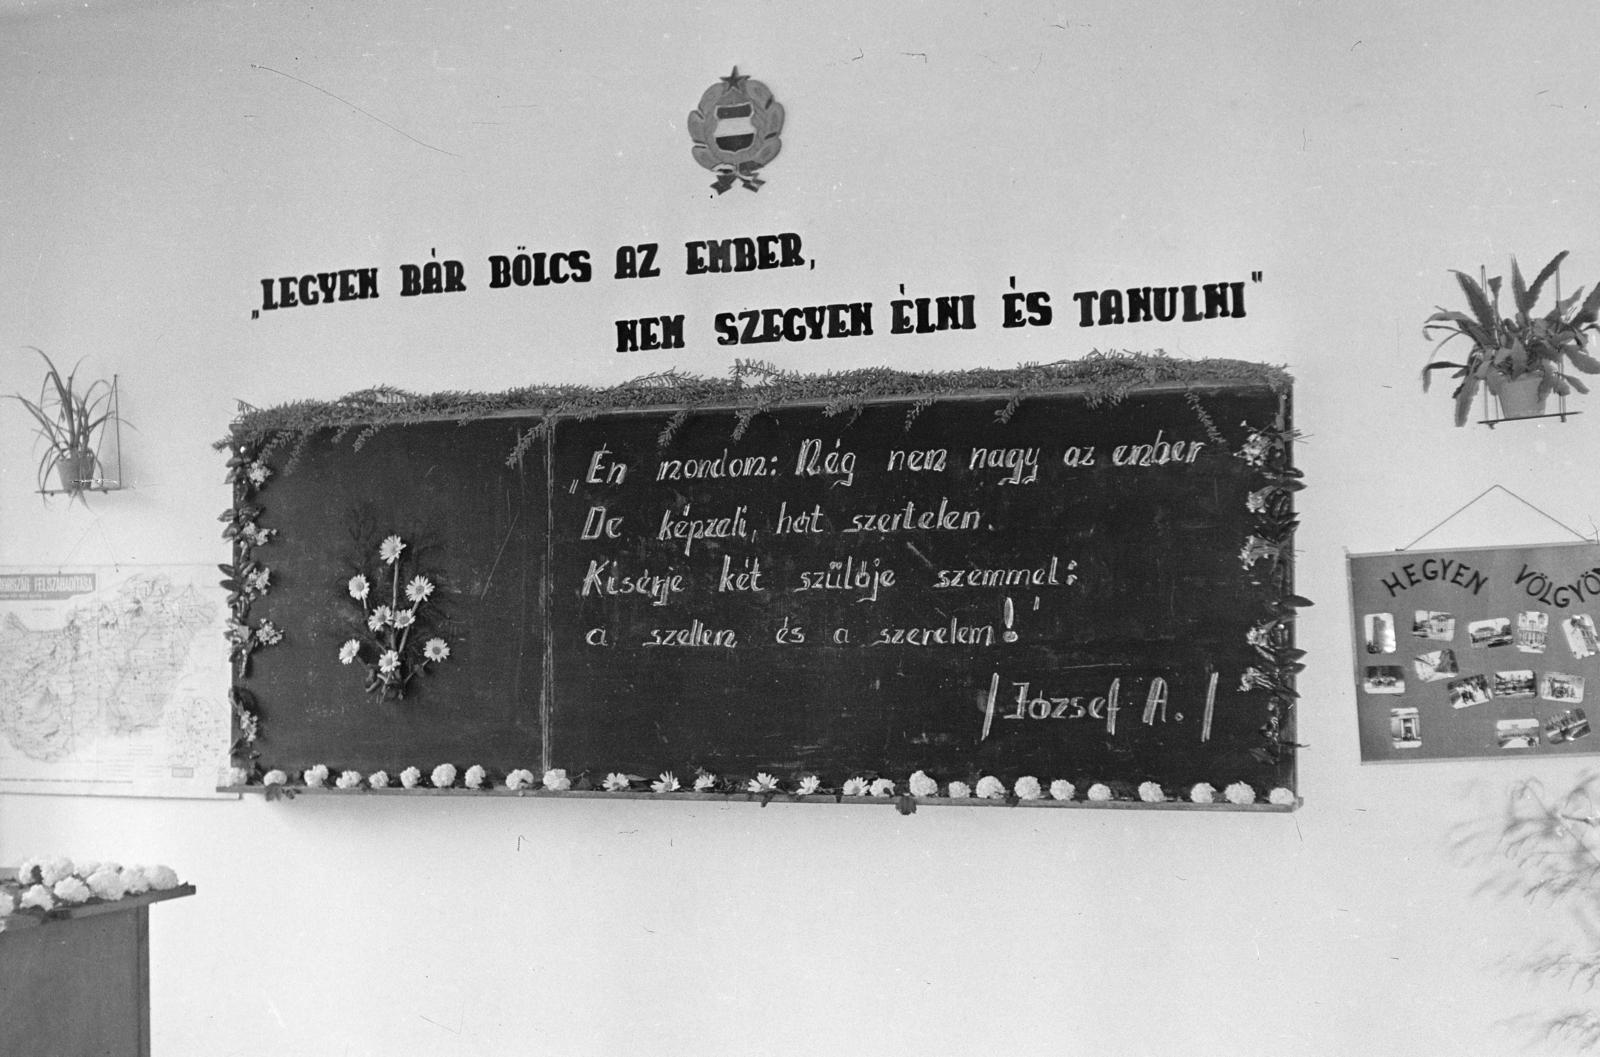 „LEGYEN BÁR BÖLCS AZ EMBER,
NEM SZEGYEN ÉLNI ÉS TANULNI"
„Én mondom: Még nem nagy az ember
De képzeli, hát szertelen.
Kisérje két szülője szemmel:
a szellem és a szerelem!"
/József A./
FELSZABADÍTÁSA
HEGYEN VÖLGYÖN